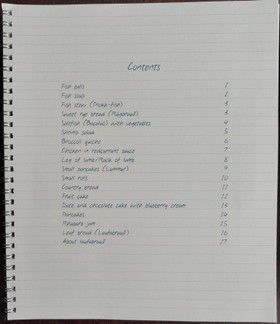 Contents
Fish balls 1
Fish soup 2
Fish stew (Plokk-fish) 3
Sweet rye bread (Rugbrauð) 4
Saltfish (Bacalao) with vegetables 4
Spring salad 5
Broccoli quiche 6
Chicken in redcurrant sauce 7
Leg of lamb/Rack of lamb 8
Small pancakes (Lummur) 9
Small rolls 10
Country bread 11
Fruit cake 12
Date and chocolate cake with blueberry cream 13
Pancakes 14
Rhubarb jam 15
Leaf bread (Laufabrauð) 16
About laufabrauð 17